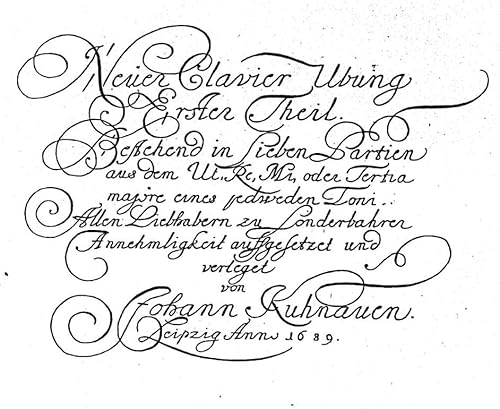 Neüer Clavier Ubung
Erster Theil.
Bestehend in Sieben Partien
aus dem Ut, Re, Mi, oder Tertia
majore eines jedweden Toni.
Allen Liebhabern zu Sonderbahrer
Annehmligkeit auffgesetzet und
verleget
von
Johann Kuhnauen.
Leipzig Anno 1689.